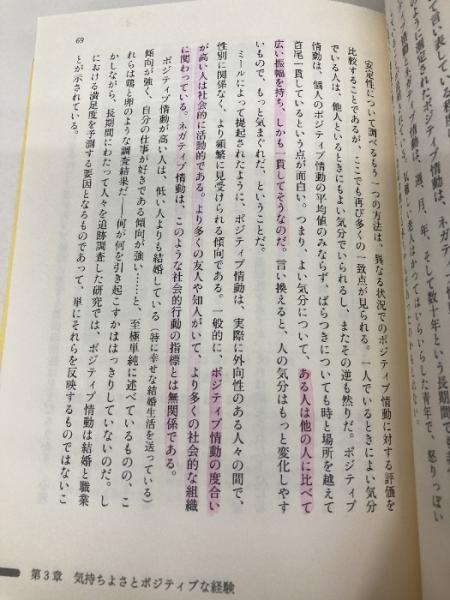 安定性について調べるもう一つの方法は、異なる状況でのポジティブ情動に対する評価を
比較することであるが、ここでも再び多くの一致点が見られる。一人でいるときによい気分
でいる人は、他人といるときにもよい気分でいられるし、またその逆も然りだ。ポジティブ
情動は、個人のポジティブ情動の平均値のみならず、ばらつきについても時と場所を越えて
首尾一貫しているという点が面白い。つまり、よい気分について、ある人は他の人に比べて
広い振幅を持ち、しかも一貫してそうなのだ。言い換えると、人の気分はもっと変化しやす
いもので、もっと気まぐれだ、ということだ。
ミールによって提起されたように、ポジティブ情動は、実際に外向性のある人々の間で、
性別に関係なく、より頻繁に見受けられる傾向である。一般的に、ポジティブ情動の度合い
が高い人は社会的に活動的である。より多くの友人や知人がいて、より多くの社会的な組織
に関わっている。ネガティブ情動は、このような社会的行動の指標とは無関係である。
ポジティブ情動が高い人は、低い人よりも結婚している（特に幸せな結婚生活を送っている）
傾向が強く、自分の仕事が好きである傾向が強い……と、至極単純に述べているものの、こ
れらは鶏と卵のような調査結果だ――何が何を引き起こすかははっきりしていないのだ。し
かしながら、長期間にわたって人々を追跡調査した研究では、ポジティブ情動は結婚と職業
における満足度を予測する要因となるものであって、単にそれらを反映するものではないこ
とが示されている。
69
第3章 気持ちよさとポジティブな経験